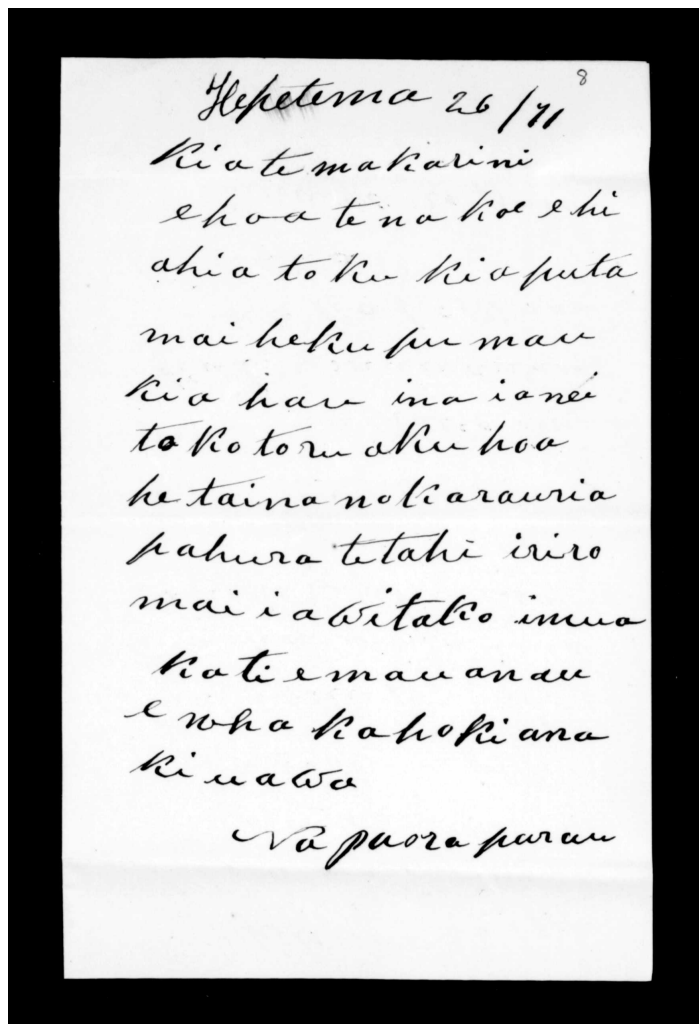 8
Hepetema 26/71
Kia te makarini
e hoa tena koe e hi
ahia toku kia puta
mai heku pu mau
kia hau ina ianei
tokotoru aku hoa
he taina no karauria
pahura tetahi iriro
mai i a witako imua
kati e mau anau
e wha ka hoki ana
ki uawa
Na paora parau